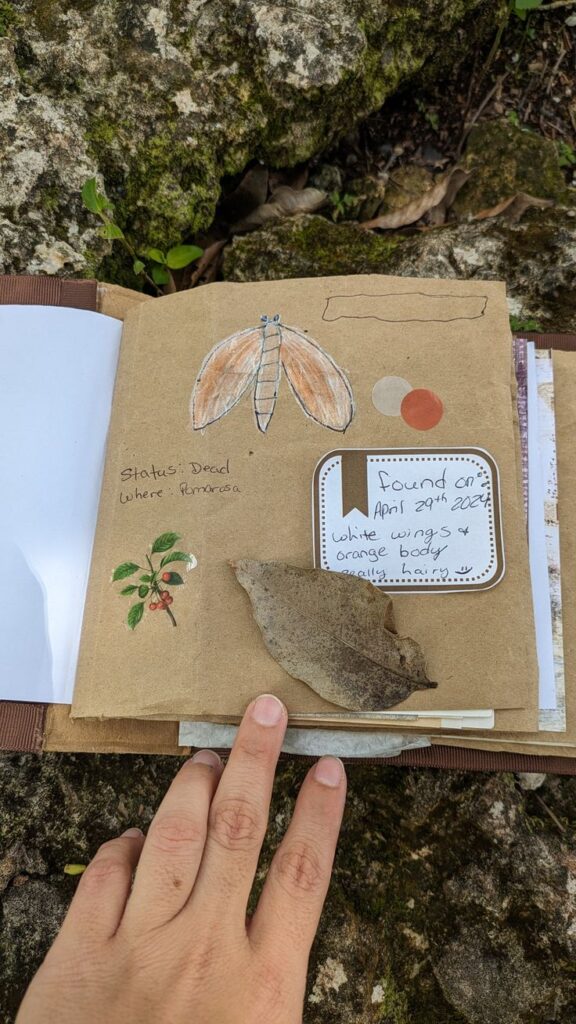 Status: Dead
Where: Pomarosa
found on:
April 29th 2024
white wings &
orange body
really hairy